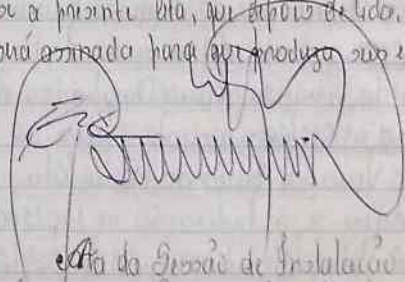 a presente Ata, que depois de lida,
assinada para que produza seus e
Ata da Sessão de Instalação